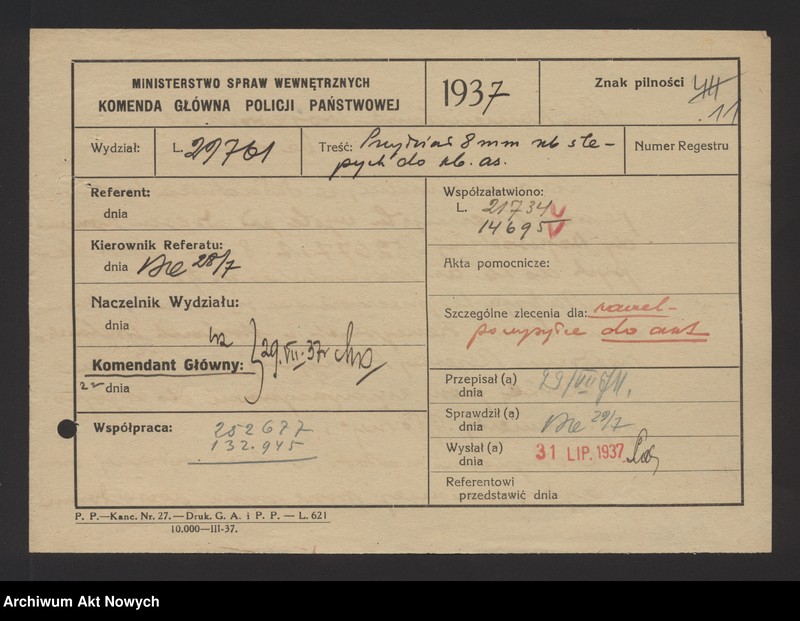 MINISTERSTWO SPRAW WEWNĘTRZNYCH
KOMENDA GŁÓWNA POLICJI PAŃSTWOWEJ
1937
Znak pilności 44
11
Wydział:
L. 29761
Treść: Przydział 8 mm nb śle-
pych do kb. as.
Numer Regestru
Referent:
dnia
Kierownik Referatu:
dnia 28/7
Naczelnik Wydziału:
dnia
wz
Komendant Główny:
dnia
29.VII-37
Współpraca: 252677
132.945
Współzałatwiono:
L. 21734
14695
Akta pomocnicze:
Szczególne zlecenia dla:
po wysyłce do akt
Przepisał (a)
dnia
29/VII
Sprawdził (a)
dnia
29/7
Wysłał (a)
dnia
31 LIP. 1937
Referentowi
przedstawić dnia
P. P.—Kanc. Nr. 27.—Druk. G. A. i P. P. — L. 621
10.000—III-37.
Archiwum Akt Nowych